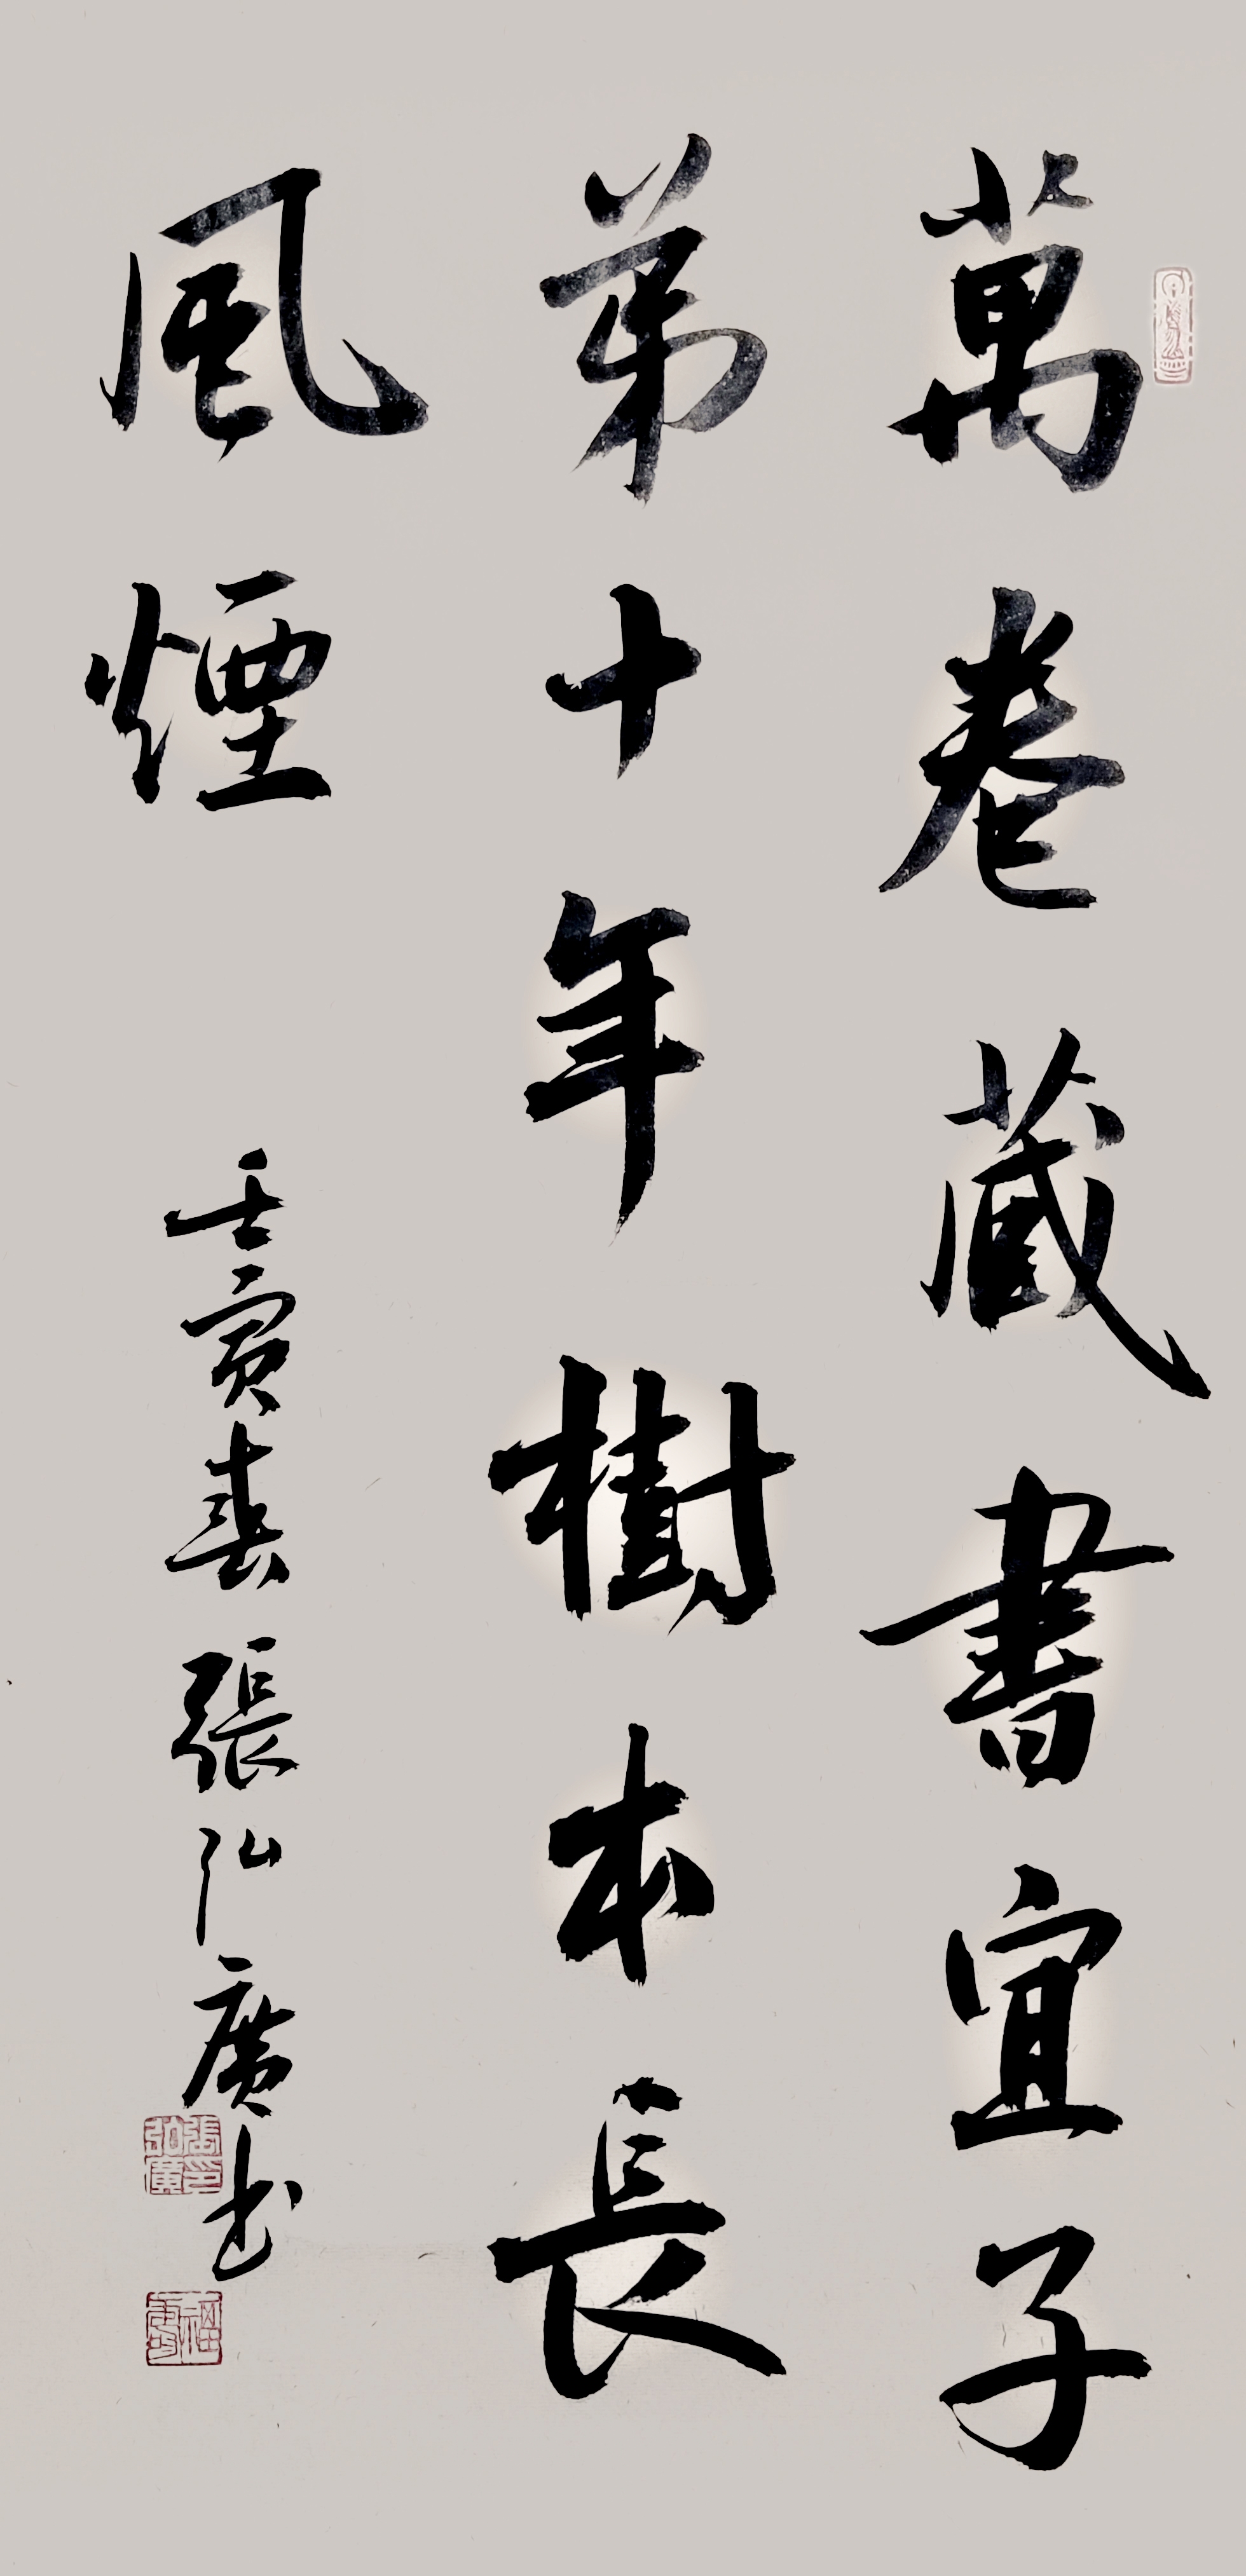 萬卷藏書宜子
弟十年樹木長
風煙
壬寅春張弘廣書
張弘廣印